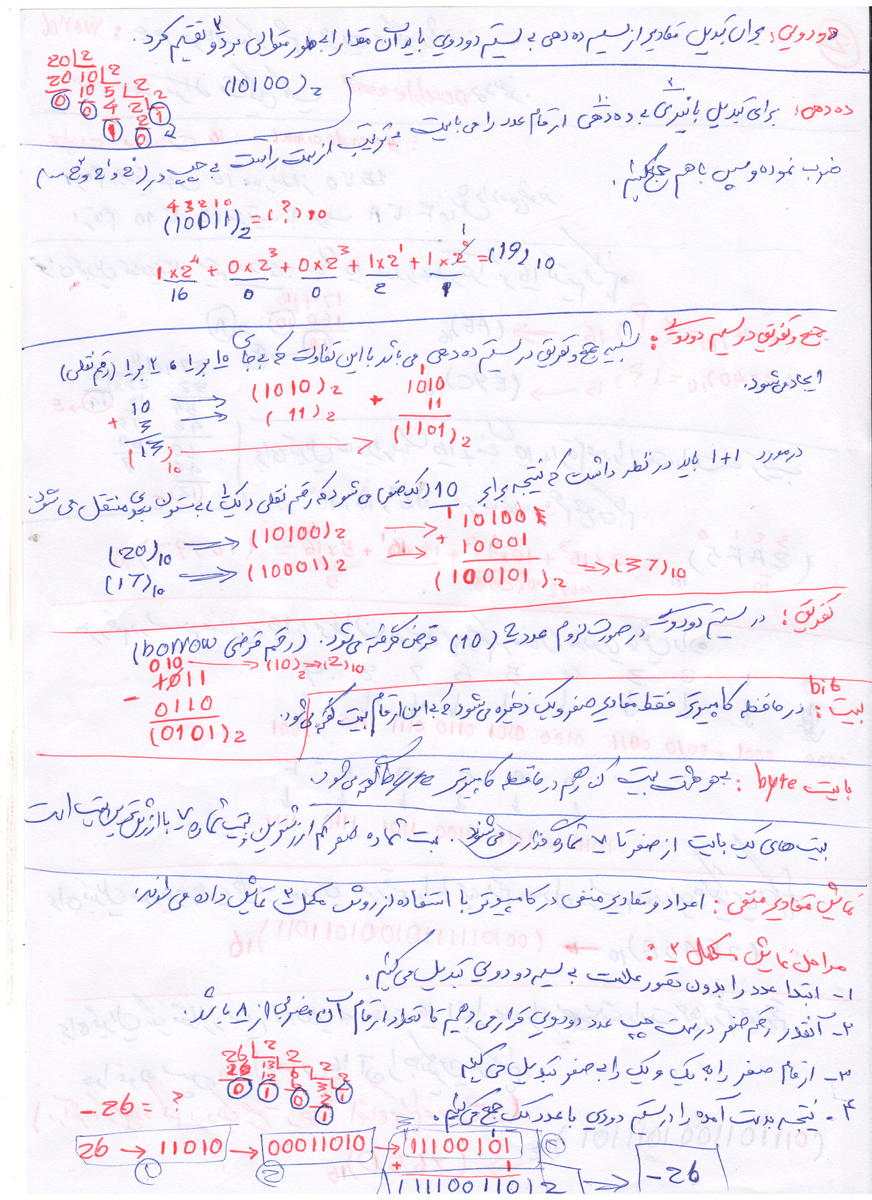 دودویی: برای تبدیل مقادیر از سیستم ده دهی به سیستم دودویی باید آن مقدار را بطور متوالی بر ۲ تقسیم کرد.
20 2
20 10 2
0 10 5 2
0 4 2 2
1 2 1
0
(10100)2
ده دهی: برای تبدیل باینری به ده دهی ارقام عدد را می بایست به ترتیب از سمت راست به چپ در (2⁰ و 2¹ و 2² ...)
ضرب نموده و سپس با هم جمع کنیم.
4 3 2 1 0
(10011)2 = (?)10
1x2⁴ + 0x2³ + 0x2³ + 1x2¹ + 1x2⁰ = (19)10
16 0 0 2 1
جمع و تفریق در سیستم دودویی: شبیه جمع و تفریق در سیستم ده دهی می باشد با این تفاوت که به جای 10 بر 1، 2 بر 1 (رقم نقلی)
ایجاد می شود.
10 → (1010)2 1010
+ 3 → (11)2 + 11
(13)10 → (1101)2
در مورد 1+1 باید در نظر داشت که نتیجه برابر 10 (یک صفر) می شود که رقم نقلی (یک) به ستون بعدی منتقل می شود.
(20)10 → (10100)2 → 10100
(17)10 → (10001)2 → + 10001
(100101)2 → (37)10
تفریق: در سیستم دودویی در صورت لزوم عدد 2 (10) قرض گرفته می شود. (رقم قرضی borrow)
010 → (10)2 → (2)10
1011
- 0110
(0101)2
bit
بیت: در حافظه کامپیوتر فقط مقادیر صفر و یک ذخیره می شود که به این ارقام بیت گفته می شود.
بایت byte: به هر هشت بیت کنار هم در حافظه کامپیوتر byte گفته می شود.
بیت های یک بایت از صفر تا ۷ شماره گذاری می شوند. بیت شماره صفر کم ارزشترین و بیت شماره ۷ با ارزش ترین بیت است
نمایش مقادیر منفی: اعداد و مقادیر منفی در کامپیوتر با استفاده از روش مکمل ۲ نمایش داده می شوند.
مراحل نمایش مکمل ۲:
۱- ابتدا عدد را بدون تصور علامت به سیستم دودویی تبدیل می کنیم.
۲- آنقدر رقم صفر در سمت چپ عدد دودویی قرار می دهیم تا تعداد ارقام آن مضربی از ۸ باشد.
۳- ارقام صفر را به یک و یک را به صفر تبدیل می کنیم
۴- نتیجه بدست آمده را در سیستم دودویی با عدد یک جمع می کنیم.
26 2
26 13 2
0 12 6 2
1 6 3 2
0 2 1
1
-26 = ?
26 → 11010 → 00011010 → 11100101
+ 1
(11100110)2 → -26